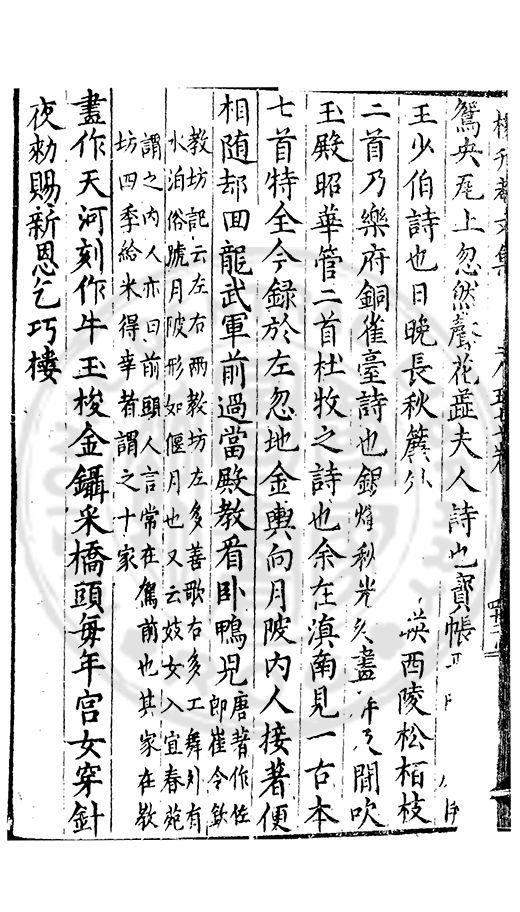 楊升菴文集
鴛央瓦上忽然聲花蕋夫人詩也寳帳
王少伯詩也日晚長秋簾外 映西陵松柏枝
二首乃樂府銅雀臺詩也銀燭秋光冷畫 閒吹
玉殿昭華管二首杜牧之詩也余在滇南見一古本
七首特全今録於左忽地金輿向月陂内人接著便
相随却囬龍武軍前過當殿教看卧鴨児唐著作佐郎崔令欽
教坊記云左右两教坊左多善歌右多工舞列有
水泊俗號月陂形如偃月也又云妓女入宜春苑
謂之内人亦曰前頭人言常在駕前也其家在教
坊四季給米得幸者謂之十家
畫作天河刻作牛玉梭金鑷采橋頭毎年宫女穿針
夜勑賜新恩乞巧樓